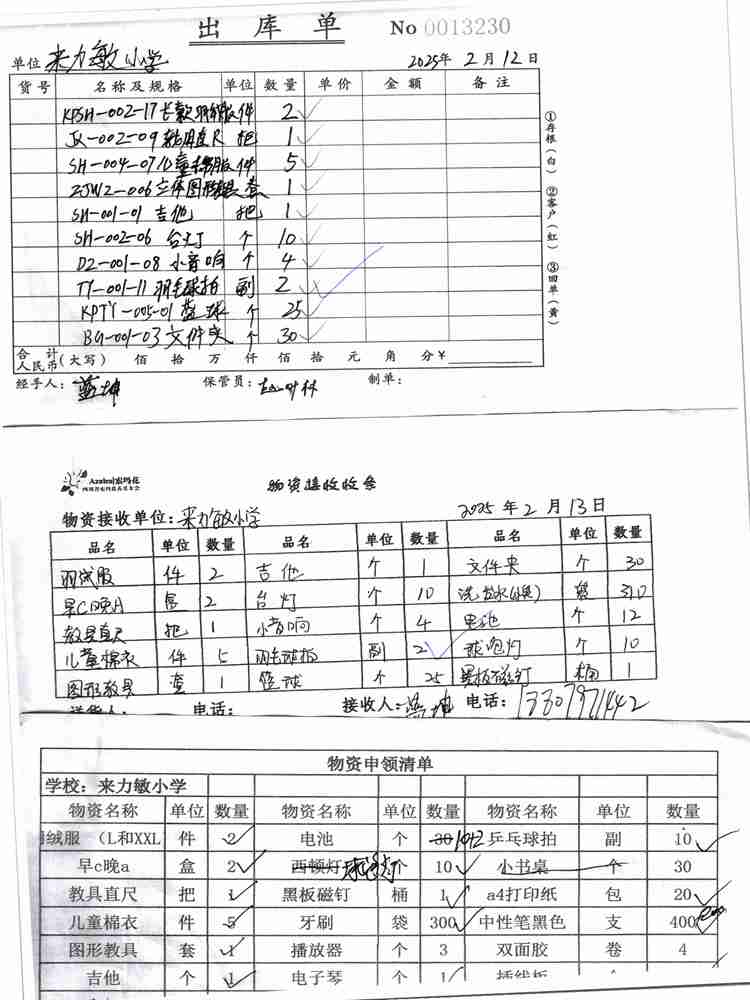 出库单 No 0013230
单位 来力敏小学 2025年 2月12日
货号 名称及规格 单位 数量 单价 金额 备注
KPSH-002-17长款羽绒服 件 2
JX-002-09教具直尺 把 1
SH-004-07儿童棉服 件 5
ZJWZ-006立体图形教具 套 1
SH-001-01 吉他 把 1
SH-002-06 台灯 个 10
DZ-001-08 小音响 个 4
TY-001-11 羽毛球拍 副 2
KPTY-005-01 篮球 个 25
BG-001-03 文件夹 个 30
合计人民币(大写) 佰 拾 万 仟 佰 拾 元 角 分¥
经手人: 蓝坤 保管员: 制单:
①存根(白) ②客户(红) ③回单(黄)
Azalea|索玛花
物资接收收条
物资接收单位:来力敏小学 2025年2月13日
品名 单位 数量 品名 单位 数量 品名 单位 数量
羽绒服 件 2 吉他 个 1 文件夹 个 30
早C晚A 盒 2 台灯 个 10 洗发水(袋) 袋 310
教具直尺 把 1 小音响 个 4 电池 个 12
儿童棉衣 件 5 羽毛球拍 副 2 球泡灯 个 10
图形教具 套 1 篮球 个 25 黑板磁钉 桶 1
电话: 接收人: 电话:
物资申领清单
学校:来力敏小学
物资名称 单位 数量 物资名称 单位 数量 物资名称 单位 数量
羽绒服 (L和XXL 件 2 电池 个 30 乒乓球拍 副 10
早c晚a 盒 2 西顿灯 球泡灯 个 10 小书桌 个 30
教具直尺 把 1 黑板磁钉 桶 1 a4打印纸 包 20
儿童棉衣 件 5 牙刷 袋 300 中性笔黑色 支 400
图形教具 套 1 播放器 个 3 双面胶 卷 4
吉他 个 1 电子琴 个 1 插线板 个